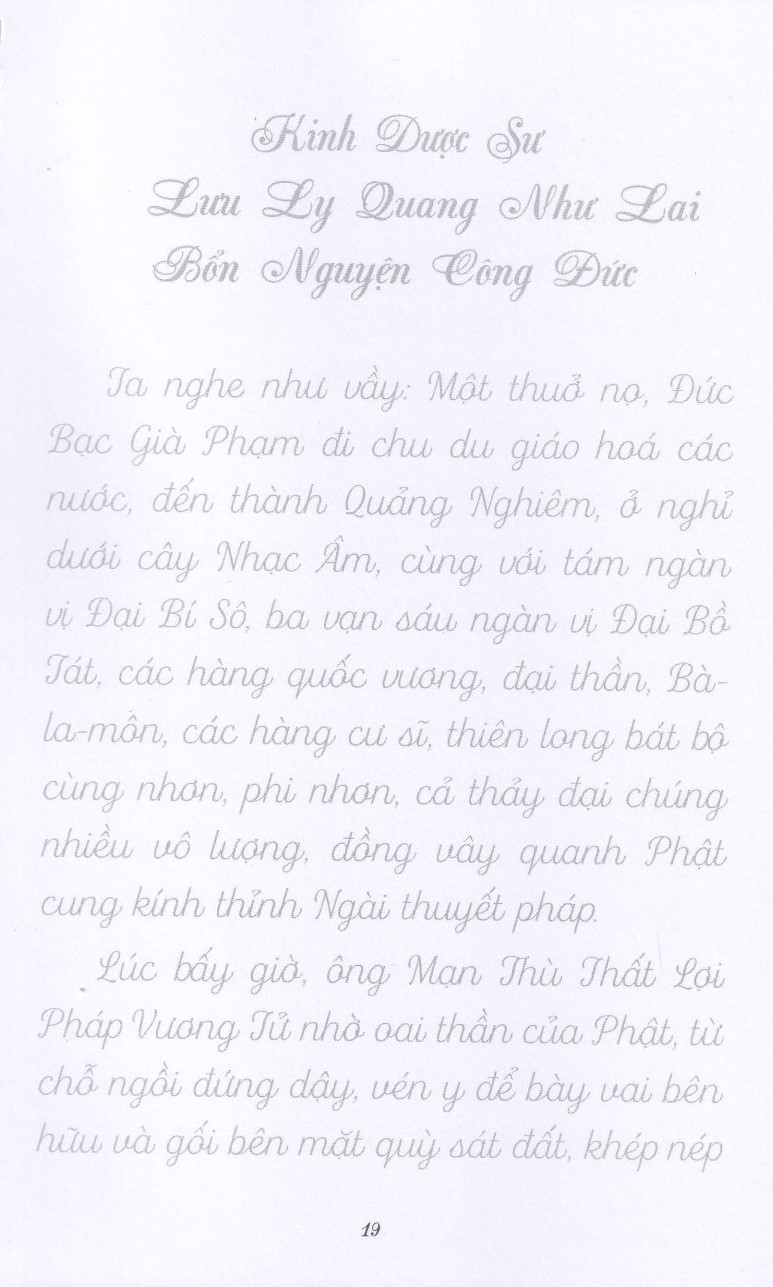 Kinh Dược Sư
Lưu Ly Quang Như Lai
Bổn Nguyện Công Đức
Ta nghe như vầy: Một thuở nọ, Đức
Bạc Già Phạm đi chu du giáo hoá các
nước, đến thành Quảng Nghiêm, ở nghỉ
dưới cây Nhạc Âm, cùng với tám ngàn
vị Đại Bí Sô, ba vạn sáu ngàn vị Đại Bồ
Tát, các hàng quốc vương, đại thần, Bà-
la-môn, các hàng cư sĩ, thiên long bát bộ
cùng nhơn, phi nhơn, cả thảy đại chúng
nhiều vô lượng, đồng vây quanh Phật
cung kính thỉnh Ngài thuyết pháp.
Lúc bấy giờ, ông Mạn Thù Thất Lợi
Pháp Vương Tử nhờ oai thần của Phật, từ
chỗ ngồi đứng dậy, vén y để bày vai bên
hữu và gối bên mặt quỳ sát đất, khép nép
19